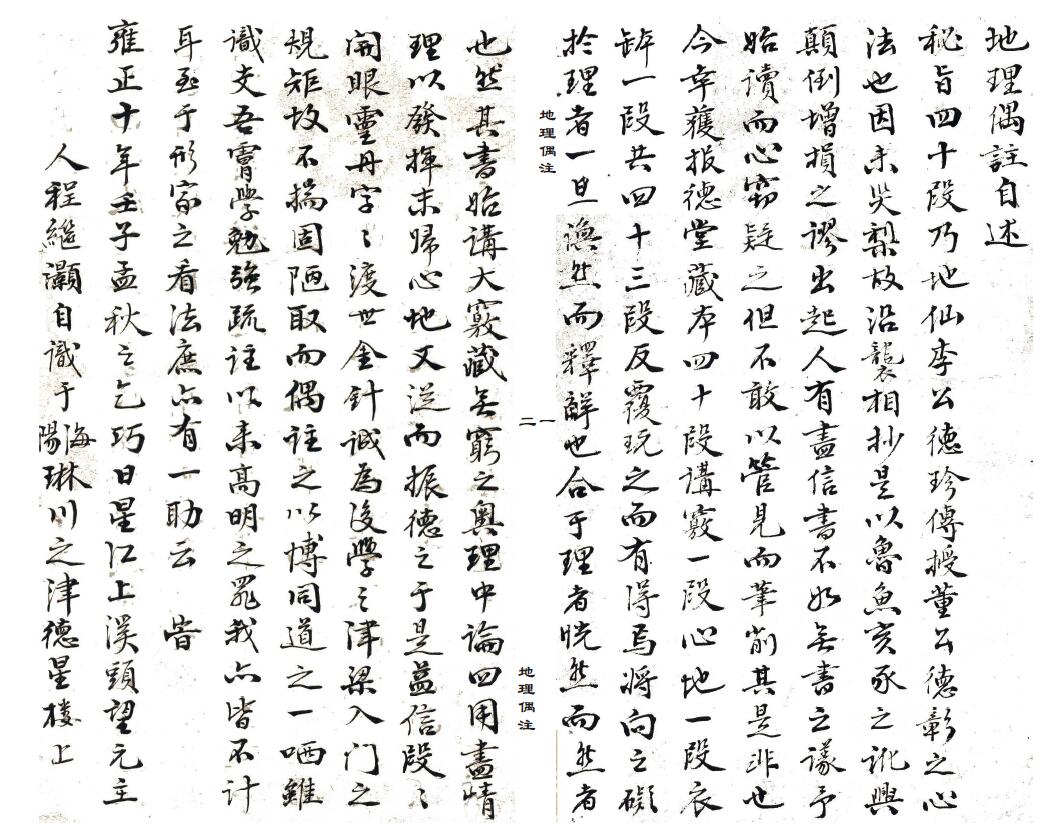 地理偶註自述
秘旨四十段乃地仙李公德珍傳授董公德彰之心
法也因未災梨故沿襲相抄是以魯魚亥豕之訛興
顛倒增損之謬出起人有盡信書不如無書之議予
始讀而心竊疑之但不敢以管見而筆削其是非也
今幸獲振德堂藏本四十段講竅一段心地一段衣
缽一段共四十三段反覆玩之而有得焉將向之礙
於理者一旦渙然而釋解也合于理者恍然而然者
地理偶注
一
二
地理偶注
也然其書始講大竅藏無窮之奧理中論四用盡情
理以發揮末歸心地又從而振德之于是益信段〻
開眼靈丹字〻渡世金針誠為後學之津梁入門之
規矩故不揣固陋取而偶註之以博同道之一哂雖
識支吾膚學勉強疏註以來高明之罪我亦皆不計
耳至于形家之看法庶亦有一助云 旹
雍正十年壬子孟秋之乞巧日星江上溪頭望元主
人程繼灝自識于海陽琳川之津德星樓上